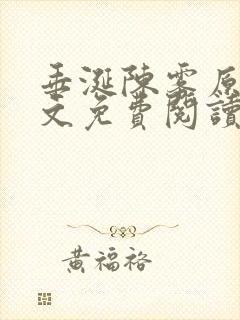 垂涎陳雾原
文免費閱讀
黄福裕